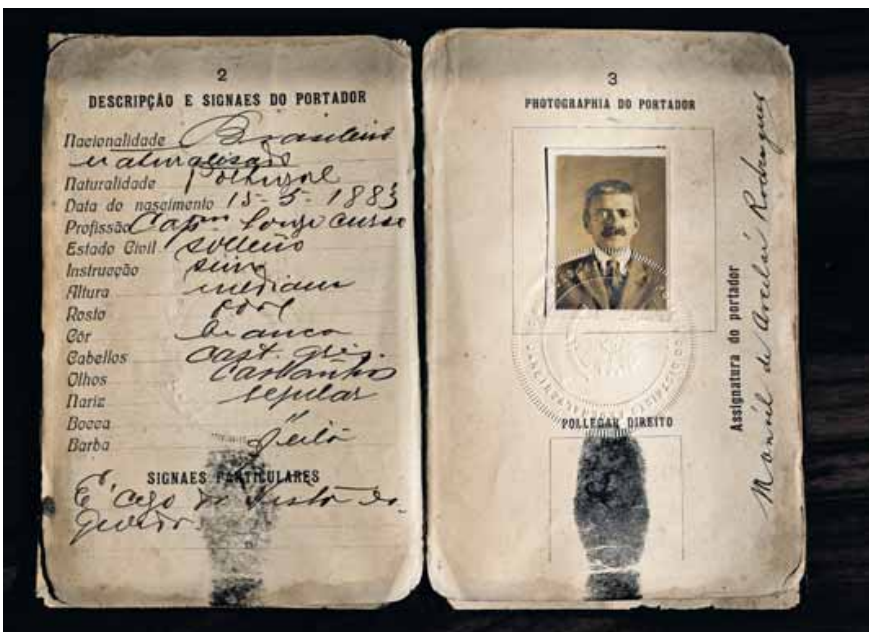 2
DESCRIPÇÃO E SIGNAES DO PORTADOR
Nacionalidade Brasileiro
naturalisado
Naturalidade Portugal
Data do nascimento 15-5-1883
Profissão Capm. longe curso
Estado Civil solteiro
Instrucção sim
Altura mediana
Rosto oval
Côr branca
Cabellos cast. gris.
Olhos Castanhos
Nariz regular
Bocca
Barba feita
SIGNAES PARTICULARES
E' cego da vista es-
querda
3
PHOTOGRAPHIA DO PORTADOR
POLLEGAR DIREITO
Assignatura do portador
Manuel de Rodrigues